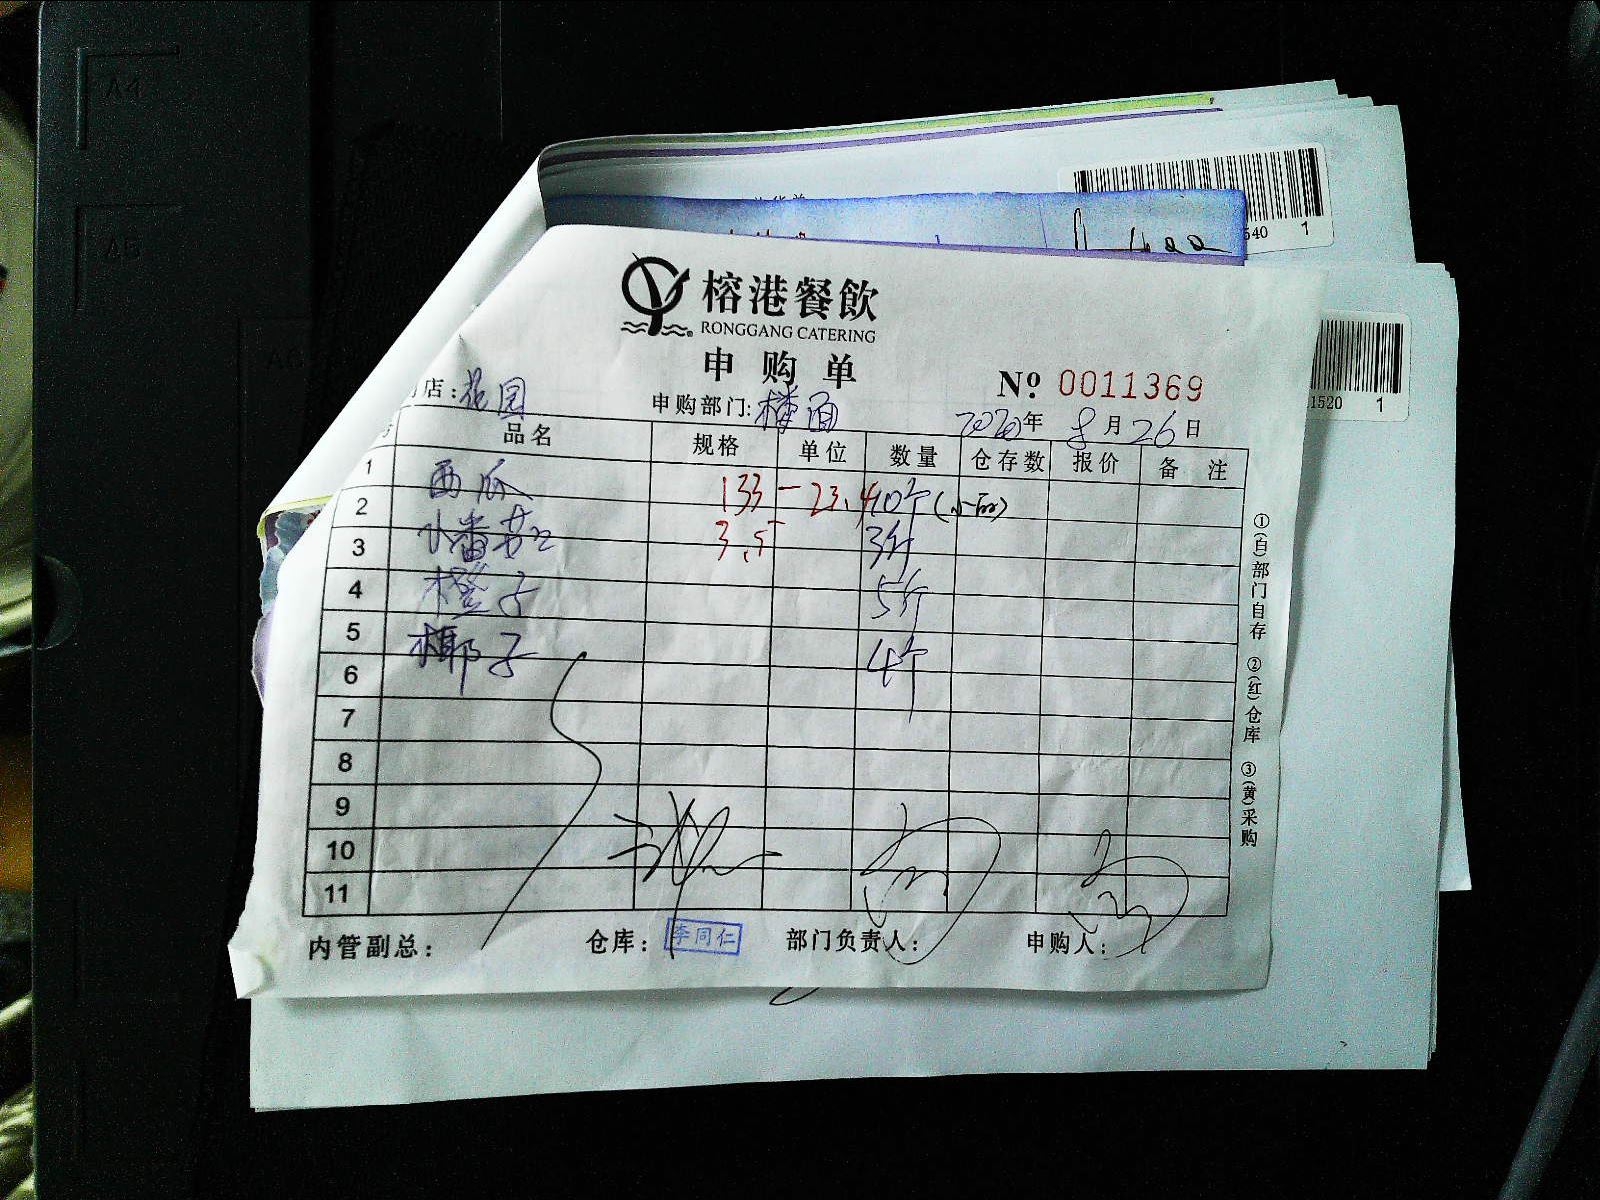 A4
A5
A6
540 1
1520 1
榕港餐飲
RONGGANG CATERING
申购单
№ 0011369
店:花园 申购部门:楼面 2020年8月26日
品名 规格 单位 数量 仓存数 报价 备注
1 西瓜 133-23.4 10个(小西)
2 小番茄 3.5 3斤
3 橙子 5斤
4 椰子 4个
5
6
7
8
9
10
11
内管副总: 仓库: 李同仁 部门负责人: 申购人:
①(白)部门自存 ②(红)仓库 ③(黄)采购